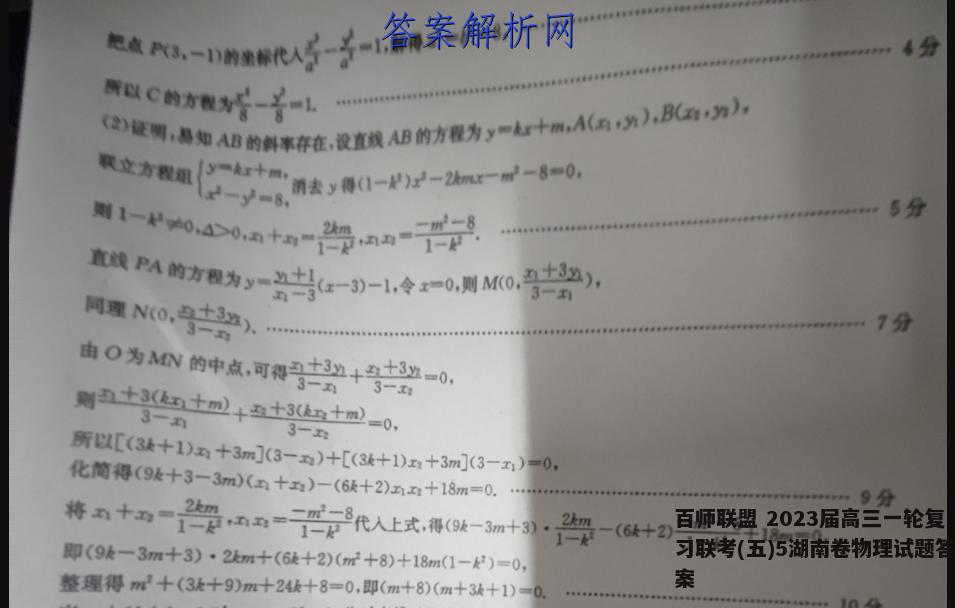 答案解析网
把点 P(3,-1)的坐标代入x²/a²-y²/a²=1,
4分
所以 C 的方程为x²/8-y²/8=1.
(2)证明,易知 AB 的斜率存在,设直线 AB 的方程为 y=kx+m,A(x₁,y₁),B(x₂,y₂),
联立方程组{y=kx+m, x²-y²=8, 消去 y 得(1-k²)x²-2kmx-m²-8=0,
则 1-k²≠0,Δ>0,x₁+x₂=2km/(1-k²),x₁x₂=(-m²-8)/(1-k²). 5分
直线 PA 的方程为 y=(y₁+1)/(x₁-3)(x-3)-1,令 x=0,则 M(0,(x₁+3y₁)/(3-x₁)),
同理 N(0,(x₂+3y₂)/(3-x₂)). 7分
由 O 为 MN 的中点,可得(x₁+3y₁)/(3-x₁)+(x₂+3y₂)/(3-x₂)=0,
则(x₁+3(kx₁+m))/(3-x₁)+(x₂+3(kx₂+m))/(3-x₂)=0,
所以[(3k+1)x₁+3m](3-x₂)+[(3k+1)x₂+3m](3-x₁)=0,
化简得(9k+3-3m)(x₁+x₂)-(6k+2)x₁x₂+18m=0. 9分
将 x₁+x₂=2km/(1-k²),x₁x₂=(-m²-8)/(1-k²)代入上式,得(9k-3m+3)·2km/(1-k²)-(6k+2)
+18m=0
即(9k-3m+3)·2km+(6k+2)(m²+8)+18m(1-k²)=0,
整理得 m²+(3k+9)m+24k+8=0,即(m+8)(m+3k+1)=0.
10分
百师联盟 2023届高三一轮复
习联考(五)5湖南卷物理试题答
案